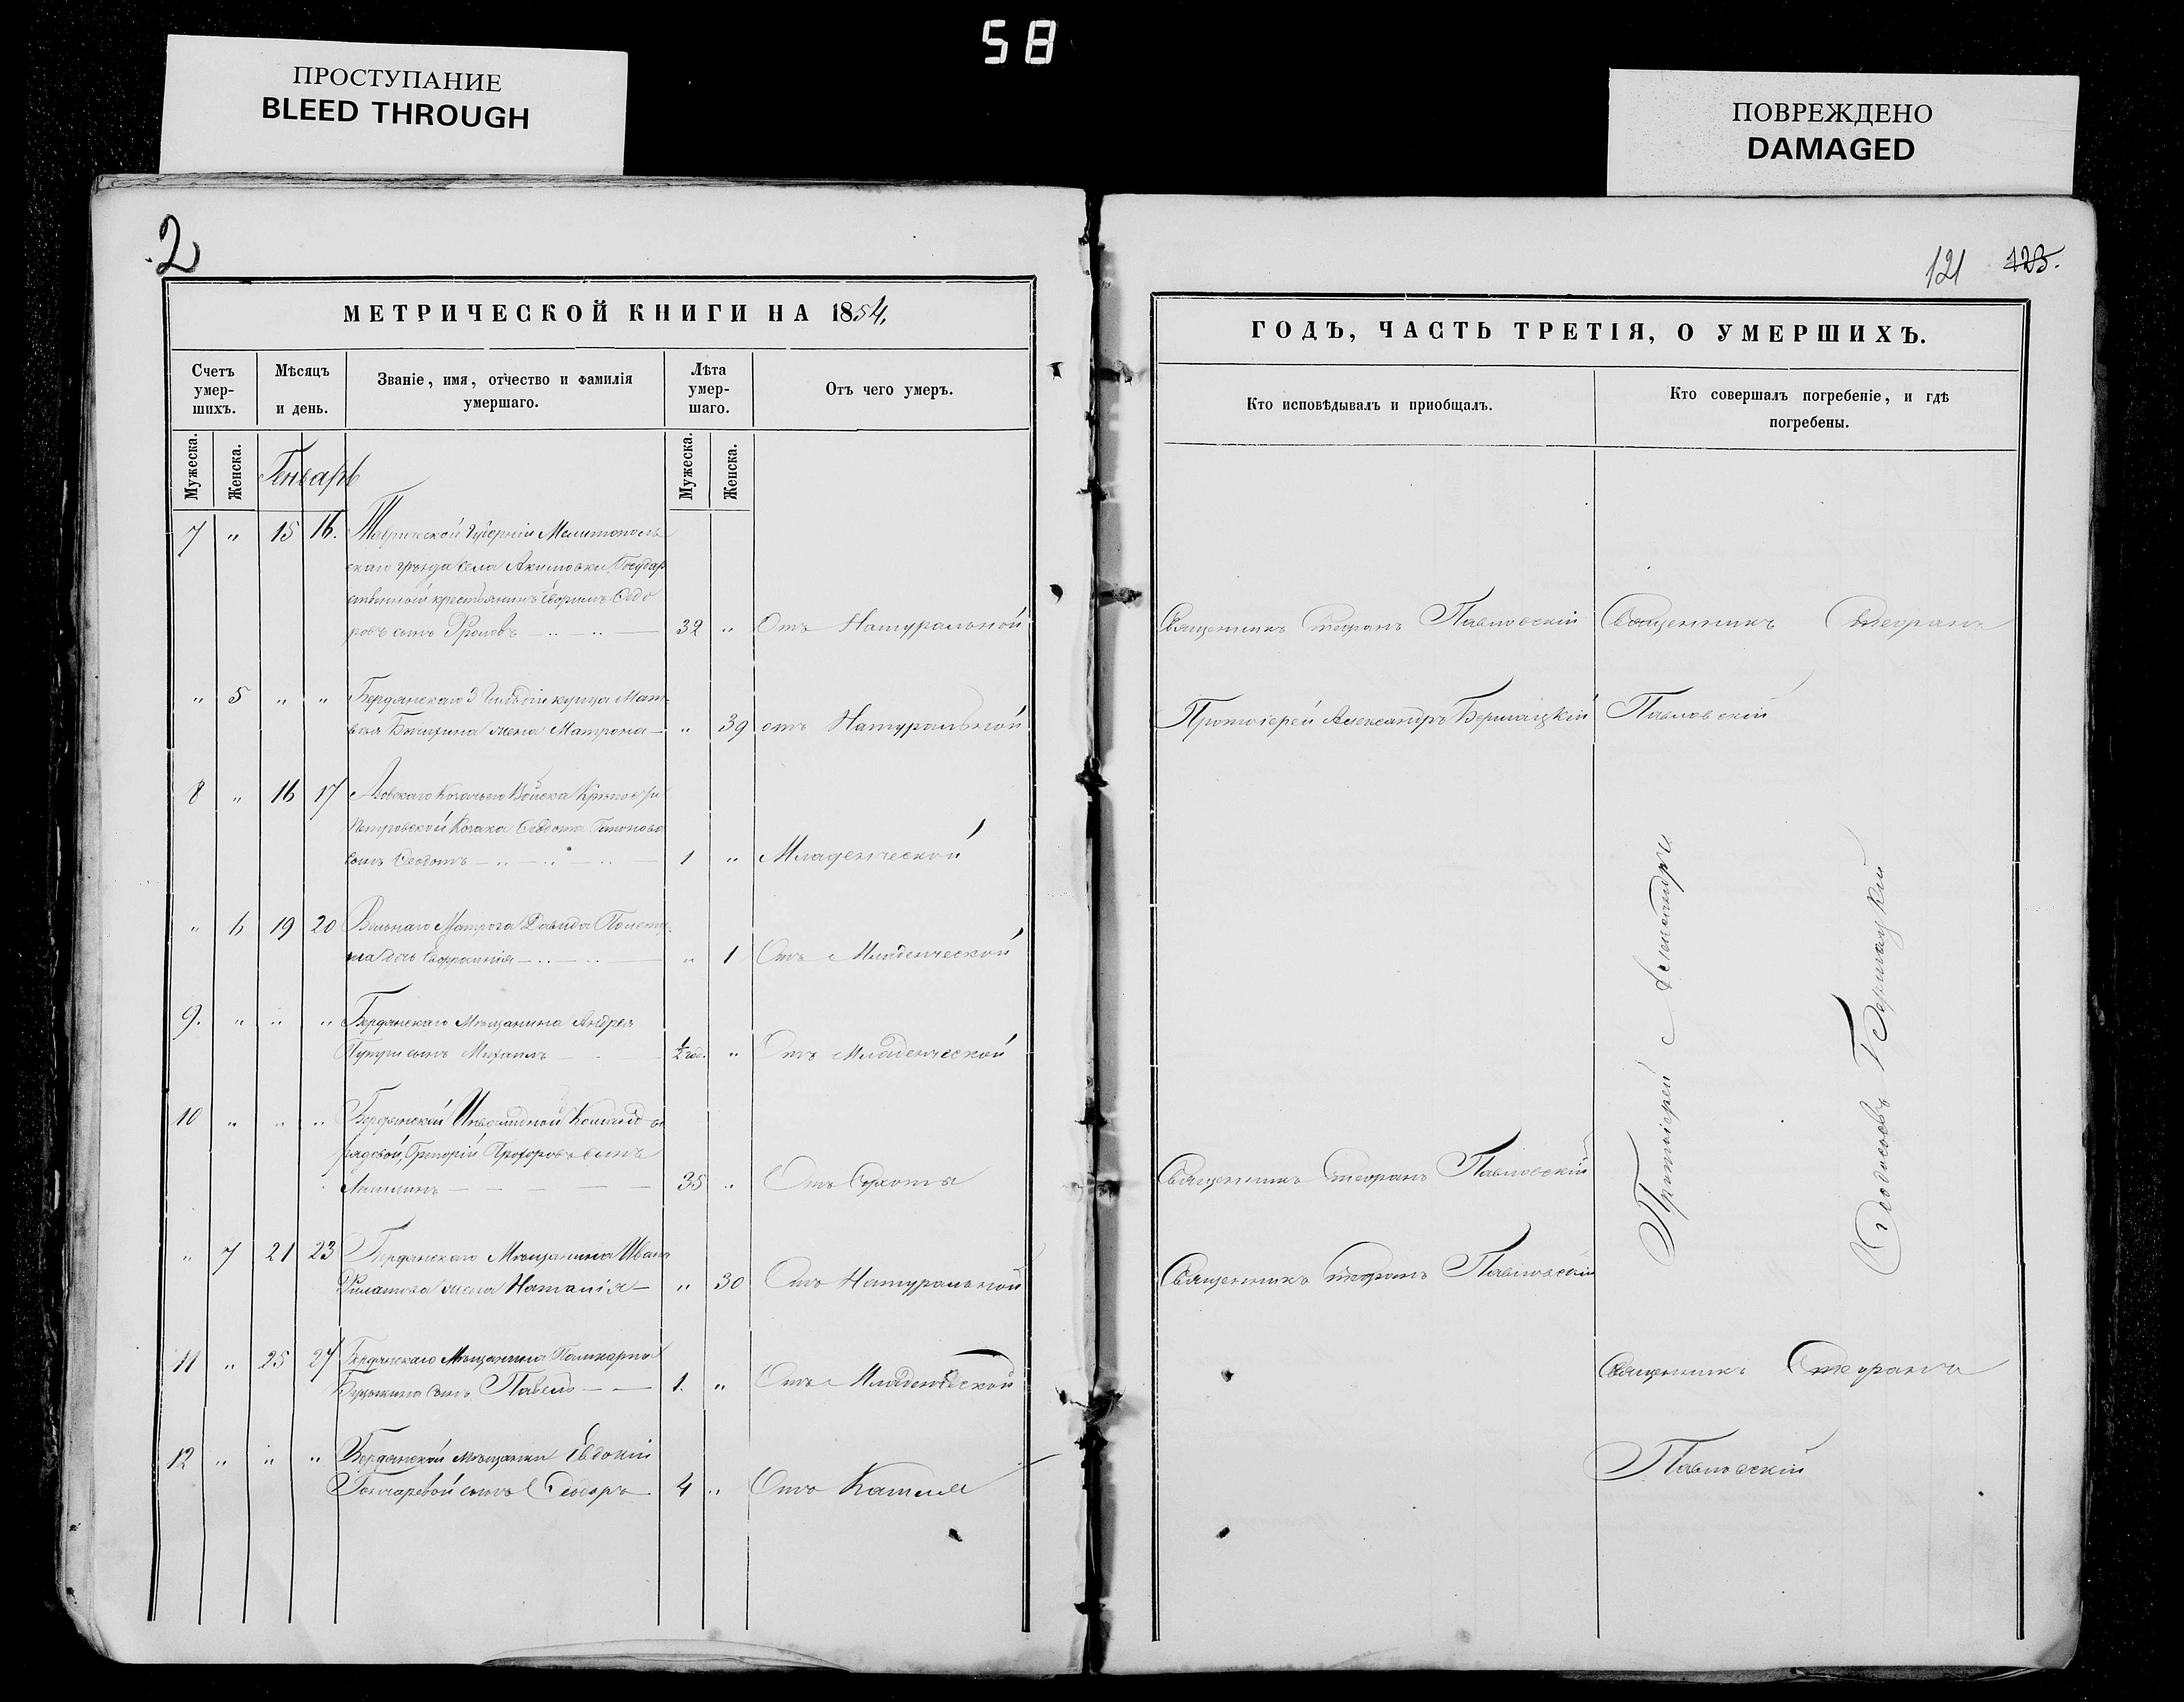 58
ПРОСТУПАНИЕ
BLEED THROUGH
ПОВРЕЖДЕНО
DAMAGED
2
МЕТРИЧЕСКОЙ КНИГИ НА 1854.
Счетъ умер-шихъ.
Мѣсяцъ и день.
Званіе, имя, отчество и фамилія умершаго.
Лѣта умер-шаго.
Отъ чего умеръ.
Мужеска.
Женска.
Генварь
Мужеска.
Женска.
7 " 15 16. Таврической Губерніи Мелитополь
скаго уѣзда села Акимовки Государ
ственный крестьянинъ Ѳедо
ровъ сынъ Фроловъ 32 " Отъ Натуральной
" 5 " " Бердянскаго 3 Гильдіи купца Мат
жена Матрона " 39 отъ Натуральной
8 " 16 17 Азовскаго Козачьего Войска
Петровской Козака
сынъ Ѳеодотъ 1 " Младенческой
" 6 19 20 Вольнаго Матроза Давида
дочь 	" 1 Отъ Младенческой
9. " " " Бердянскаго Мѣщанина Андрея
сынъ Михаилъ 1/2 год. " Отъ Младенческой
10 " " " Бердянской Инвалидной Команды
рядовой, Григорій Прохоровъ сынъ
35 " Отъ
" 7 21 23 Бердянскаго Мѣщанина Ивана
Филатова жена Наталія " 30 Отъ Натуральной
11 " 25 27 Бердянскаго Мѣщанина Поликарпа
сынъ Павелъ 1. " Отъ Младенческой
12 " " " Бердянской мѣщанки Евдокіи
Гончаревой сынъ Ѳеодоръ 4 " Отъ Кашля
121 123.
ГОДЪ, ЧАСТЬ ТРЕТІЯ, О УМЕРШИХЪ.
Кто исповѣдывалъ и приобщалъ.
Кто совершалъ погребеніе, и гдѣ погребены.
Священникъ Стефанъ Павловскій
Священникъ Стефанъ
Протоіерей Александръ
Павловскій
Протоіерей Александръ
Священникъ Стефанъ Павловскій
Священникъ Стефанъ Павловскій
Священникъ Стефанъ
Павловскій